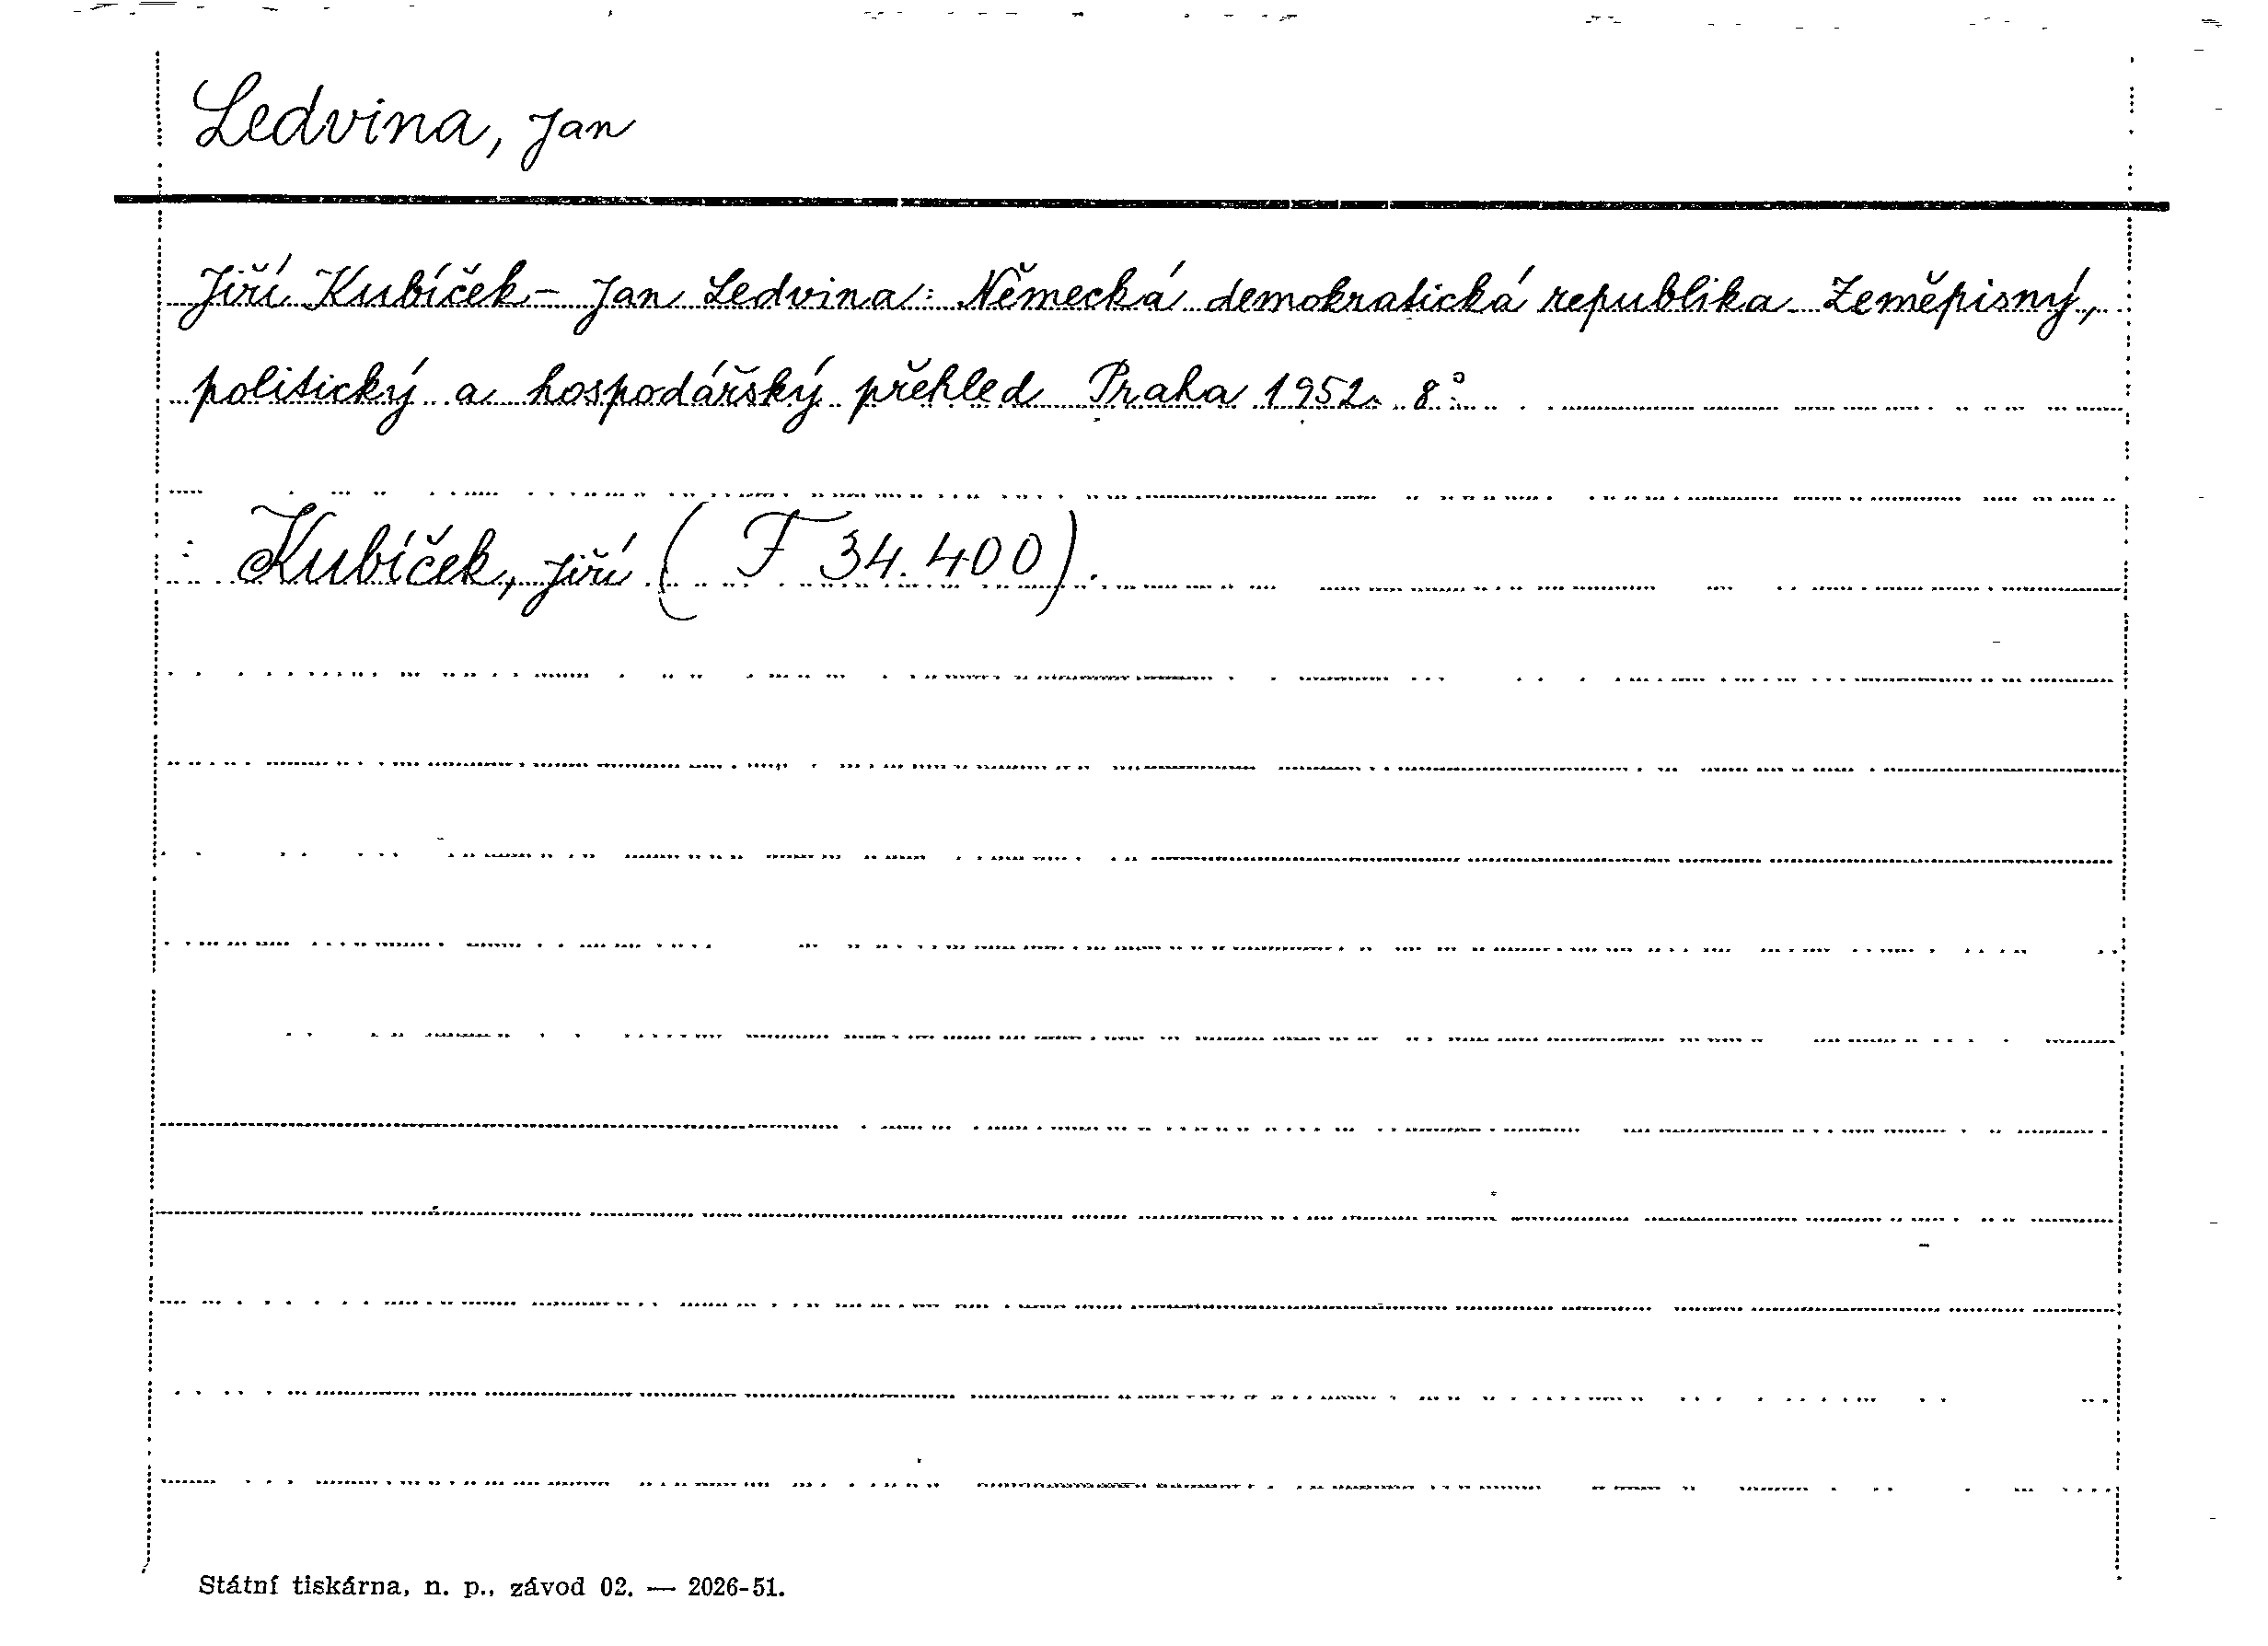 Ledvina, Jan
Jiří Kubíček - Jan Ledvina: Německá demokratická republika. Zeměpisný,
politický a hospodářský přehled Praha 1952. 8°.
: Kubíček, Jiří ( F 34.400).
Státní tiskárna, n. p., závod 02. — 2026-51.